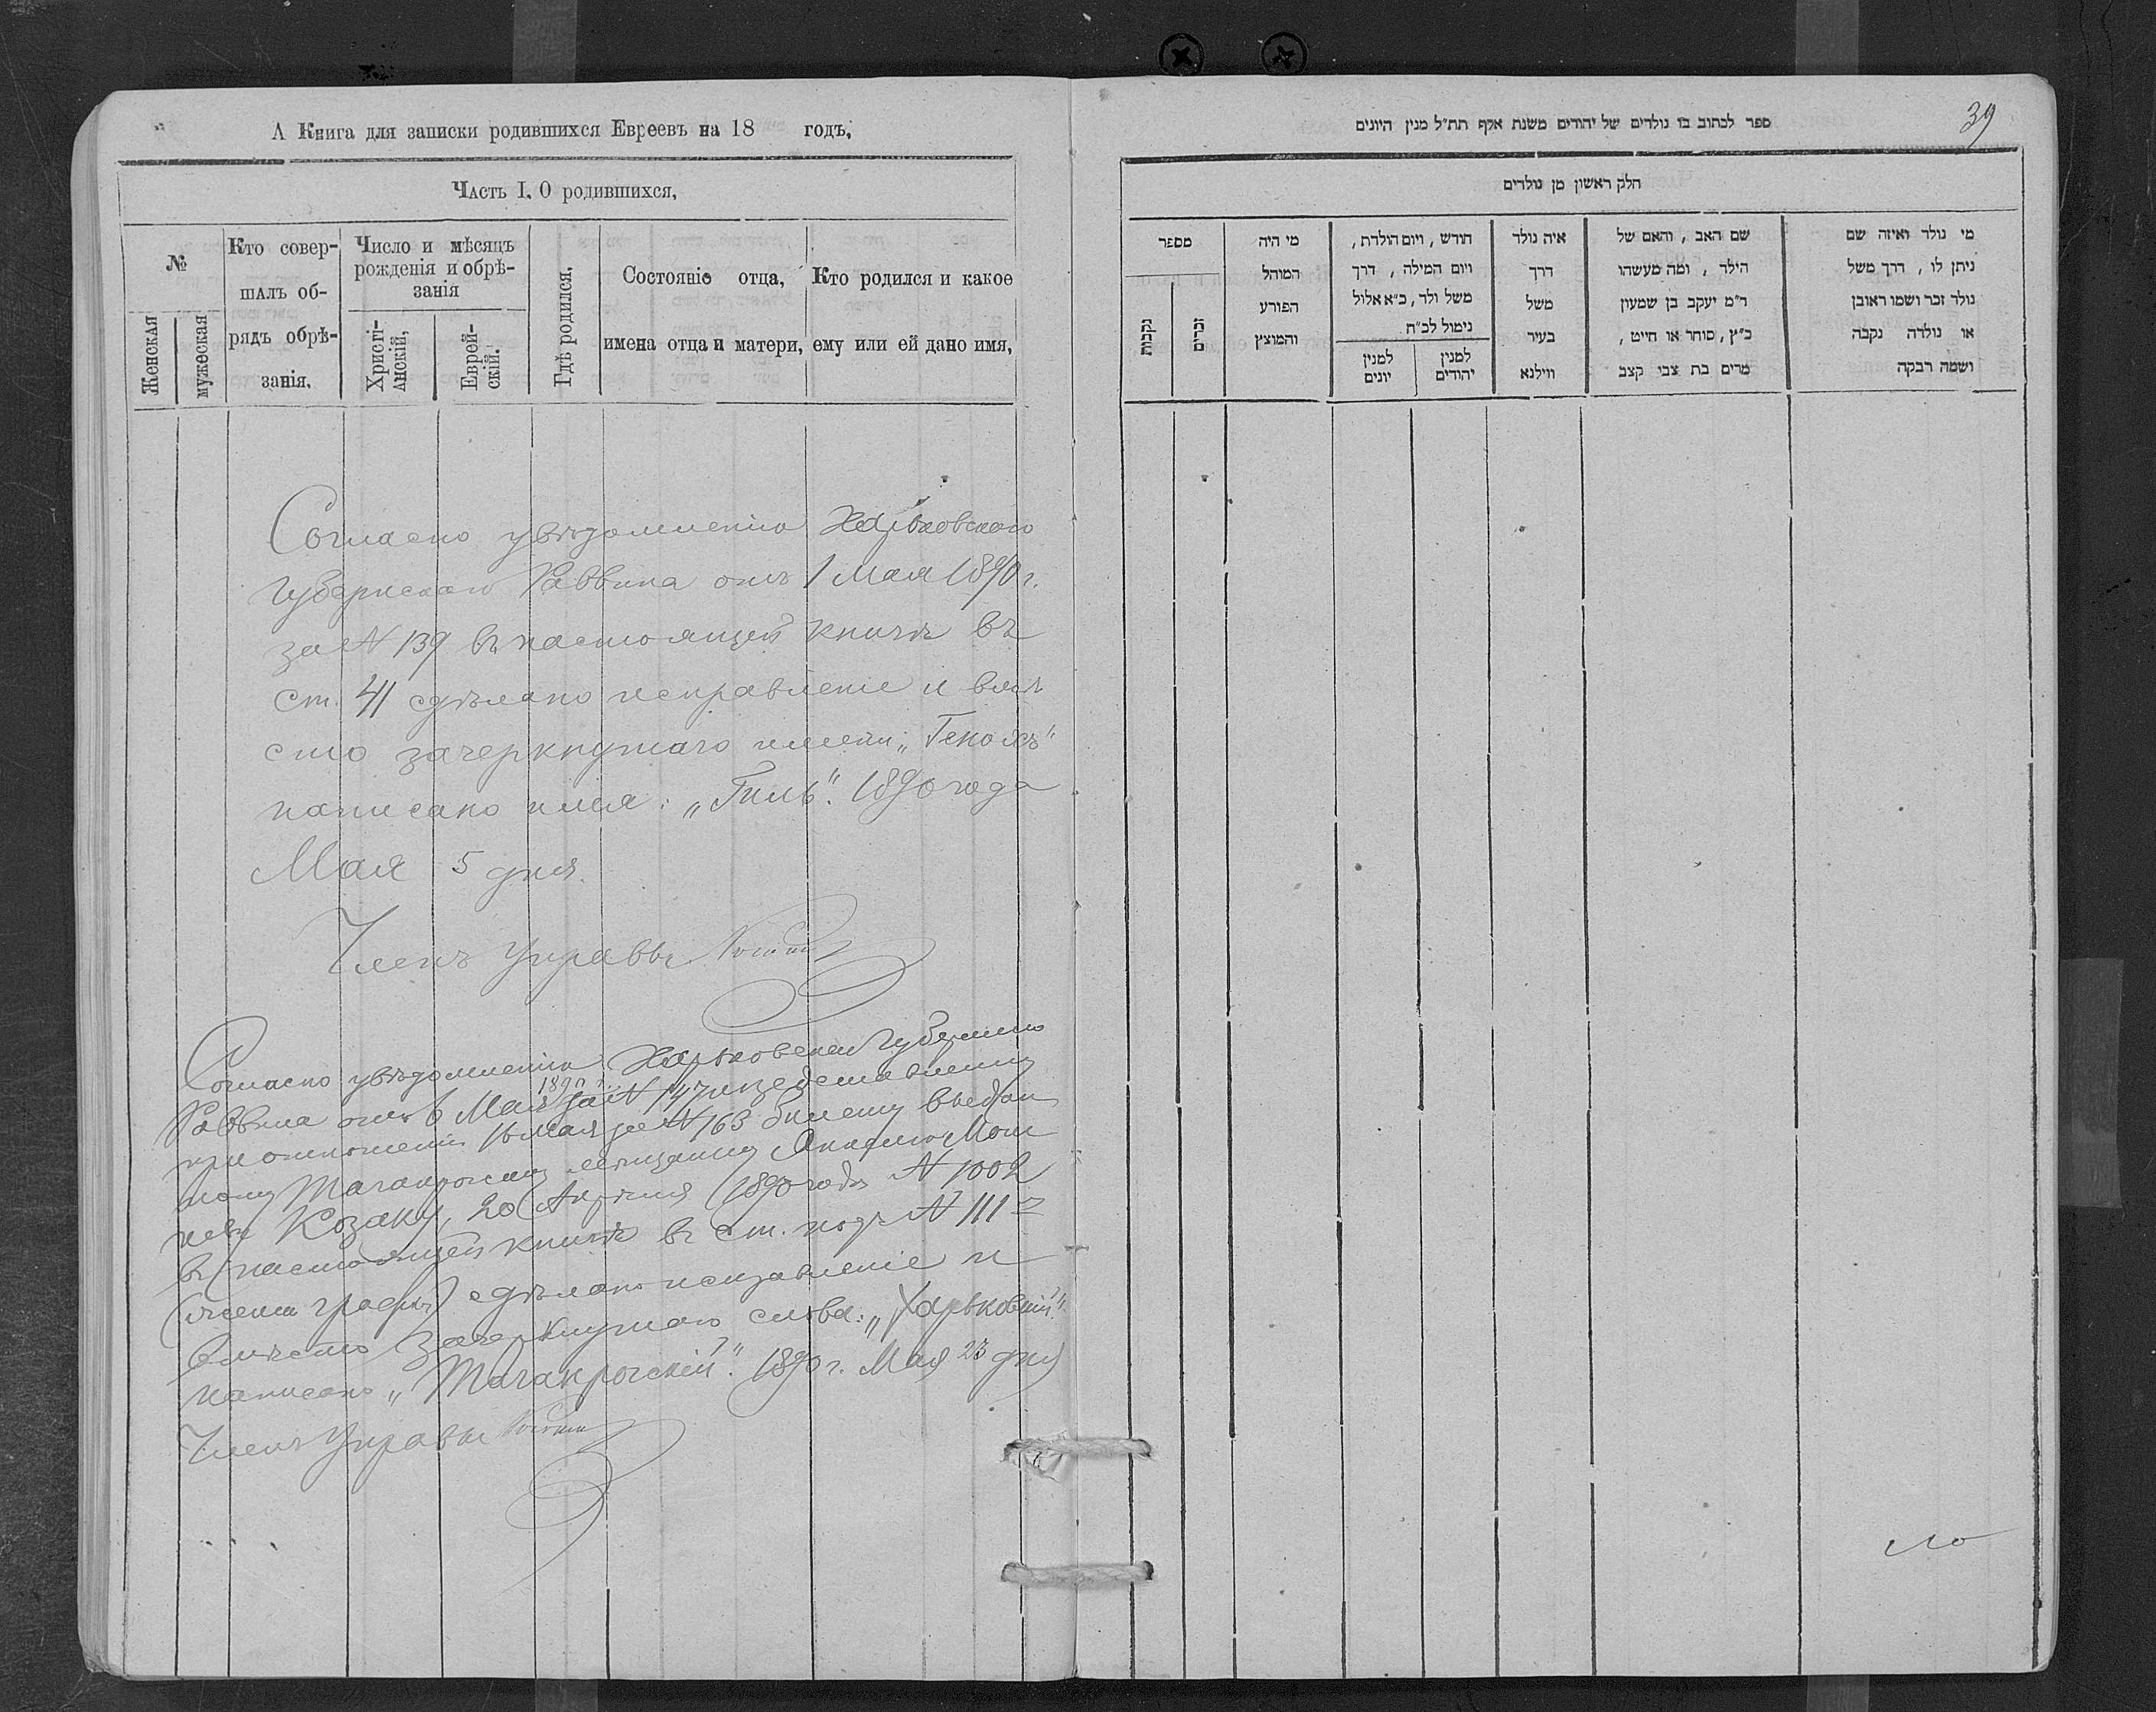 А Книга для записки родившихся Евреевъ на 18 годъ,
Часть I. О родившихся,
№
Женская
мужеская
Кто совер-
шалъ об-
рядъ обрѣ-
занія.
Число и мѣсяцъ
рожденія и обрѣ-
занія
Христі-
анскій,
Еврей-
скій.
Гдѣ родился,
Состояніе отца,
имена отца и матери,
Кто родился и какое
ему или ей дано имя,
Согласно увѣдомленію Харьковскаго
Губернскаго Раввина отъ 1 Мая 1890 г.
за № 139 въ настоящей книгѣ въ
ст. 41 сдѣлано исправленіе и вмѣ
сто зачеркнутаго имени „Генохъ"
написано имя: „Гиль". 1890 года
Мая 5 дня.
Членъ Управы
Согласно увѣдомленію Харьковскаго Губернскаго
1890 г.
Раввина отъ 6 Мая за № 147 и представленному
при отношеніи 16 Мая за № 163 билету выдан
ному Таганрогскому мѣщанину
Козаку, 20 Апрѣля 1890 года № 1002
въ настоящей книгѣ въ ст. подъ № 111
(женск графы) сдѣлано исправленіе и
вмѣсто зачеркнутаго слова: „Харьковскій"
написано „Таганрогскій". 1890 г. Мая 23 дня
Членъ Управы
39
ספר לכתוב בו נולדים של יהודים משנת אלף תת״ל מנין היונים
חלק ראשון מן נולדים
מי נולד ואיזה שם
ניתן לו, דרך משל
נולד זכר ושמו ראובן
או נולדה נקבה
ושמה רבקה
שם האב, והאם של
הילד, ומה מעשהו
ר״מ יעקב בן שמעון
כ״ץ, סוחר או חייט,
מרים בת צבי קצב
איה נולד
דרך
משל
בעיר
ווילנא
חודש, ויום הולדת,
ויום המילה, דרך
משל ולד, כ״א אלול
נימול לכ״ח
למנין
יהודים
למנין
יונים
מי היה
המוהל
הפורע
והמוצץ
מספר
זכרים
נקבות